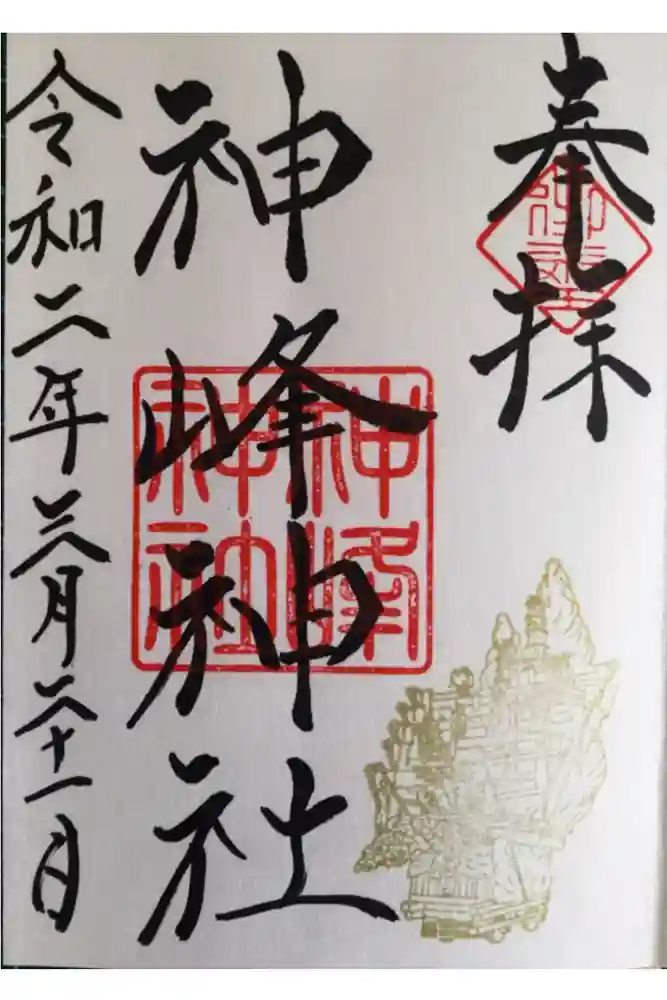 奉拝
神峰神社
神峰神社
令和二年三月二十一日